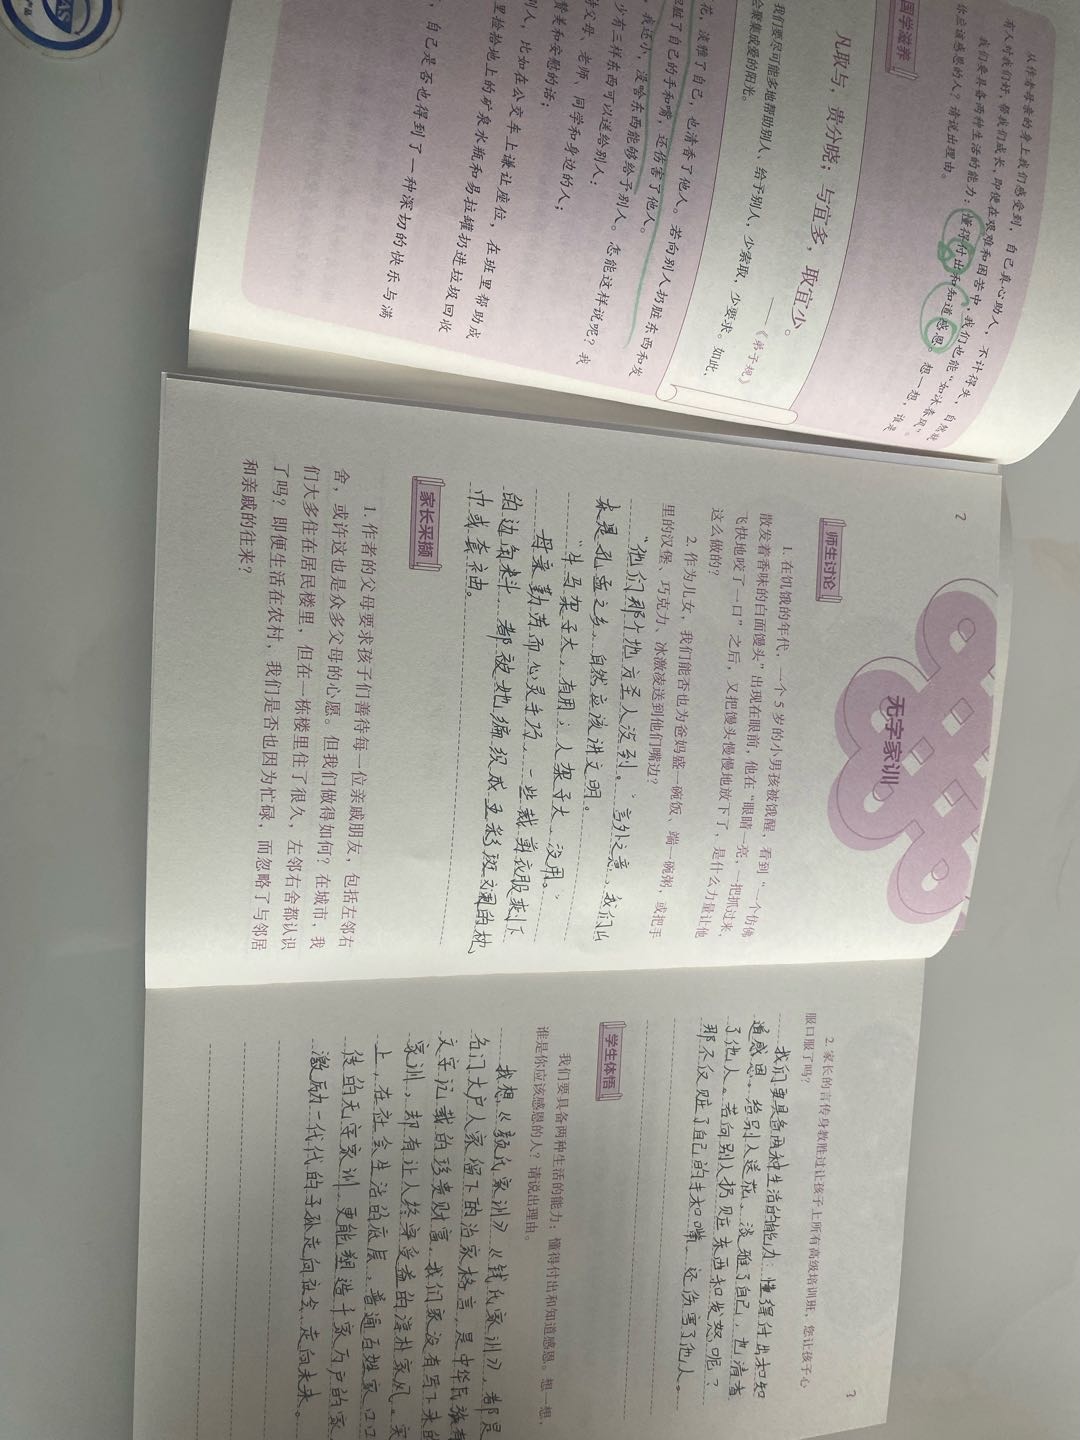 从作者母亲的身上我们感受到，自己真心助人，不计得失，自
有人对我们好，帮我们成长，即使在艰难和困苦中，我们也能“如沐春风”。
我们要具备两种生活的能力：懂得付出和知道感恩。想一想，谁是
你应该感恩的人？请说出理由。
国学滋养
凡取与，贵分晓；与宜多，取宜少。
——《弟子规》
我们要尽可能多地帮助别人、给予别人，少索取，少要求。如此，
会聚集成爱的阳光。
花，淡雅了自己，也清香了他人。若向别人扔脏东西和发
脏了自己的手和嘴，还伤害了他人。
，我还小，没啥东西能够给予别人。怎能这样说呢？我
少有三样东西可以送给别人：
父母、老师、同学和身边的人；
赞美和安慰的话；
别人，比如在公交车上谦让座位，在班里帮助成
里捡拾地上的矿泉水瓶和易拉罐扔进垃圾回收
，自己是否也得到了一种深切的快乐与满
无字家训
师生讨论
1. 在饥饿的年代，一个5岁的小男孩被饿醒，看到“一个仿佛
散发着香味的白面馒头”出现在眼前，他在“眼睛一亮，一把抓过来，
飞快地咬了一口”之后，又把馒头慢慢地放下了，是什么力量让他
这么做的？
2. 作为儿女，我们能否也为爸妈盛一碗饭、端一碗粥，或把手
里的汉堡、巧克力、冰激凌送到他们嘴边？
“他们那个地方圣人没到。”言外之意，我们山
东是孔孟之乡，自然应该讲文明。
“牛马架子大，有用；人架子大，没用。”
母亲勤劳而心灵手巧，一些裁剪衣服剩下
的边角料，都被她编织成五彩斑斓的枕
巾或套袖。
家长采撷
1. 作者的父母要求孩子们善待每一位亲戚朋友，包括左邻右
舍，或许这也是众多父母的心愿。但我们做得如何？在城市，我
们大多住在居民楼里，但在一栋楼里住了很久，左邻右舍都认识
了吗？即便生活在农村，我们是否也因为忙碌，而忽略了与邻居
和亲戚的往来？
2. 家长的言传身教胜过让孩子上所有高级培训班，您让孩子心
服口服了吗？
我们要具备两种生活的能力：懂得付出和知
道感恩。给别人送花，淡雅了自己，也清香
了他人。若向别人扔脏东西和发怒呢？
那不仅脏了自己的手和嘴，还伤害了他人。
学生体悟
我们要具备两种生活的能力：懂得付出和知道感恩。想一想，
谁是你应该感恩的人？请说出理由。
我想，《颜氏家训》《钱氏家训》，都是
名门大户人家留下的治家格言，是中华民族有
文字记载的珍贵财富，我们家没有写下来的
家训，却有让人终身受益的淳朴家风。实
上，在社会生活的底层，普通百姓家口口
传的无字家训，更能塑造千家万户的家
激励一代代的子孙走向社会、走向未来。